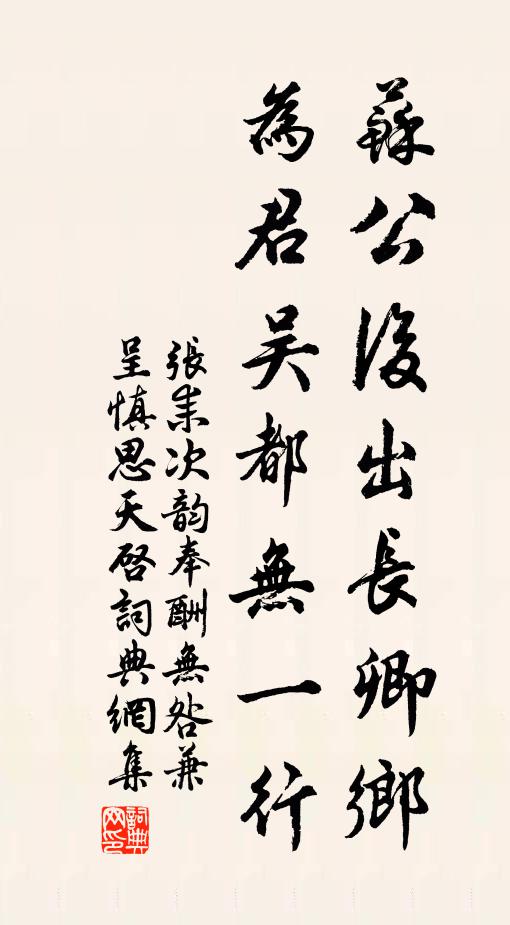 蘇公後出長卿鄉
為君吴都無一行
張耒次韵奉酬無咎兼
呈慎思天啓詞典網集
詞典網印